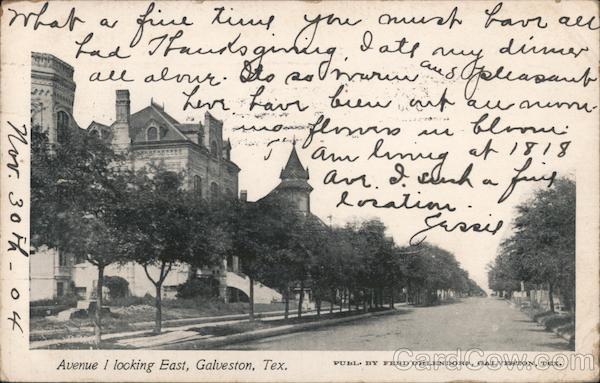 What a fine time you must have all
had Thanksgiving, I ate my dinner
all alour. Its so warm and pleasant
here have bien out all morn-
ing flowers in bloom.
Am living at 1818
Ave. I. such a fine
location.
Jessie
Nov. 30th - 04
Avenue I looking East, Galveston, Tex.
PUBL. BY FERD OHLENDORF, GALVESTON, TEX.
CardCow.com